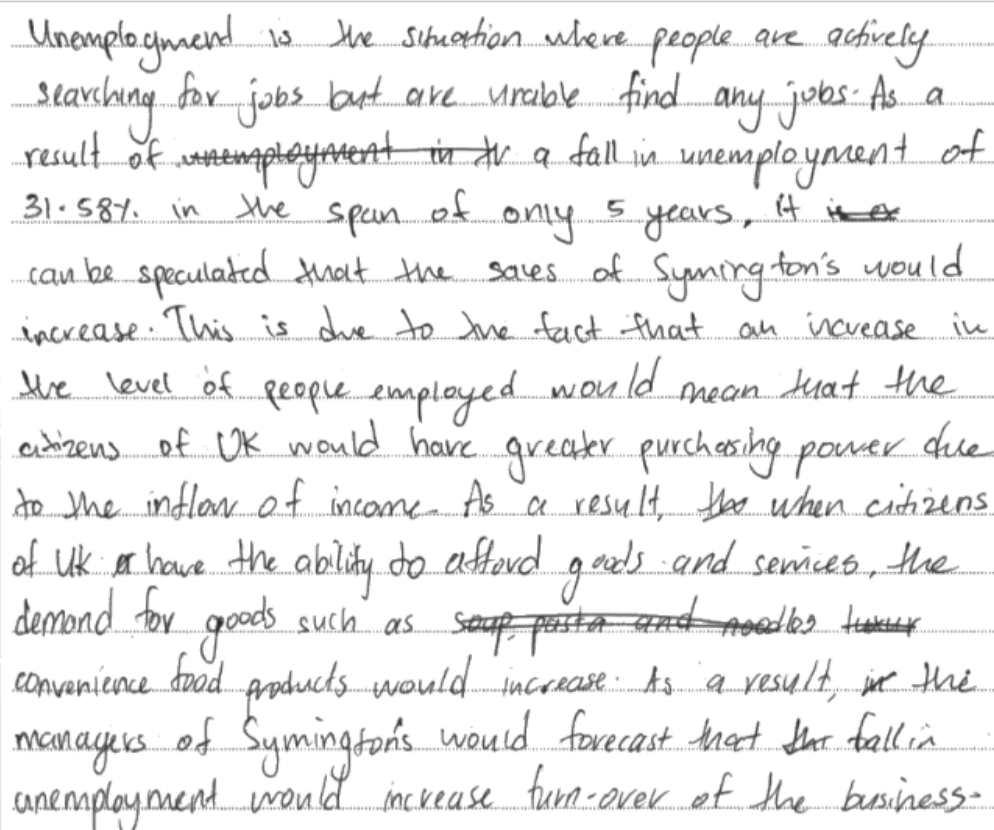 Unemployment is the situation where people are actively
searching for jobs but are unable find any jobs. As a
result of unemployment in a fall in unemployment of
31.58%. in the span of only 5 years, it is
can be speculated that the sales of Symington's would
increase. This is due to the fact that an increase in
the level of people employed would mean that the
citizens of UK would have greater purchasing power due
to the inflow of income. As a result, when citizens
of UK have the ability to afford goods and services, the
demand for goods such as soup, pasta and noodles luxur
convenience food products would increase. As a result, in the
managers of Symington's would forecast that the fall in
unemployment would increase turn-over of the business.